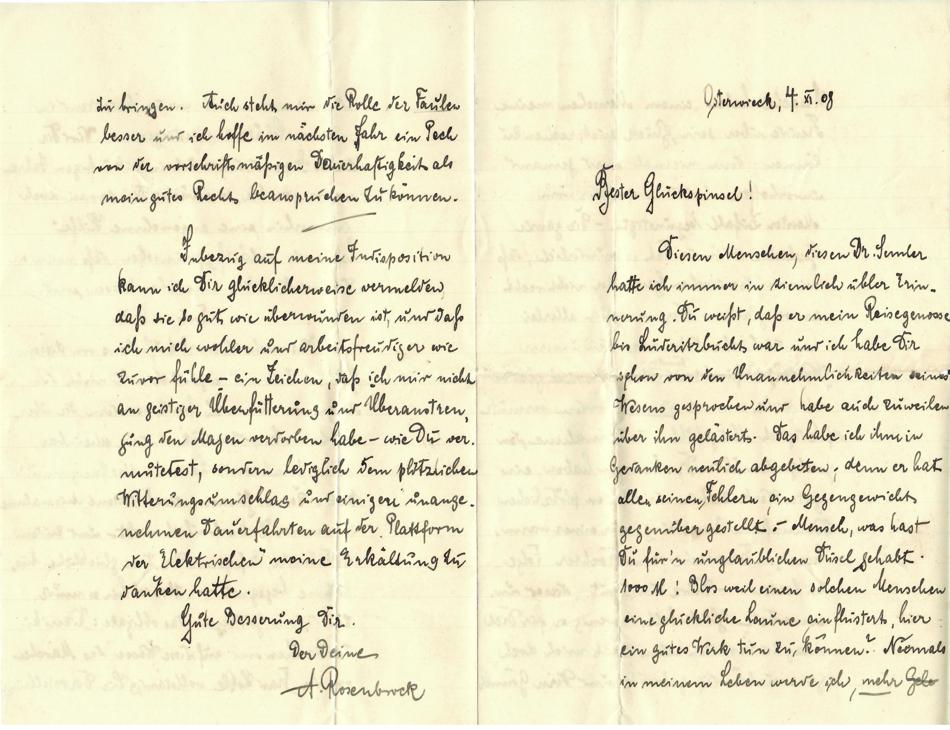 Osterwieck, 4. XI. 08
Bester Glückspinsel!
Diesen Menschen, diesen Dr. Semler
hatte ich immer in ziemlich übler Erin-
nerung. Du weißt, daß er mein Reisegenosse
bis Lüderitzbucht war und ich habe Dir
schon von den Unannehmlichkeiten seines
Wesens gesprochen und habe auch zuweilen
über ihn gelästert. Das habe ich ihm in
Gedanken neulich abgebeten; denn er hat
allen seinen Fehlern ein Gegengewicht
gegenübergestellt. – Mensch, was hast
Du für'n unglaublichen Dusel gehabt.
1000 M! Blos weil einen solchen Menschen
eine glückliche Laune einflüstert, hier
ein gutes Werk tun zu können? Niemals
in meinem Leben werde ich mehr
zu bringen. Auch steht mir die Rolle der Faulen
besser und ich hoffe im nächsten Jahr ein Pech
von der vorschriftsmäßigen Dauerhaftigkeit als
mein gutes Recht beanspruchen zu können.
Inbezug auf meine Indisposition
kann ich Dir glücklicherweise vermelden,
daß sie so gut wie überwunden ist, und daß
ich mich wohler und arbeitsfreudiger wie
zuvor fühle – ein Zeichen, daß ich mir nicht
an geistiger Überfütterung und Überanstren-
gung den Magen verdorben habe – wie Du ver-
mutetest, sondern lediglich dem plötzlichen
Witterungsumschlag und einigen unange-
nehmen Dauerfahrten auf der Plattform
der „Elektrischen" meine Erkältung zu
danken hatte.
Gute Besserung Dir.
Der Deine
A. Rosenbrock